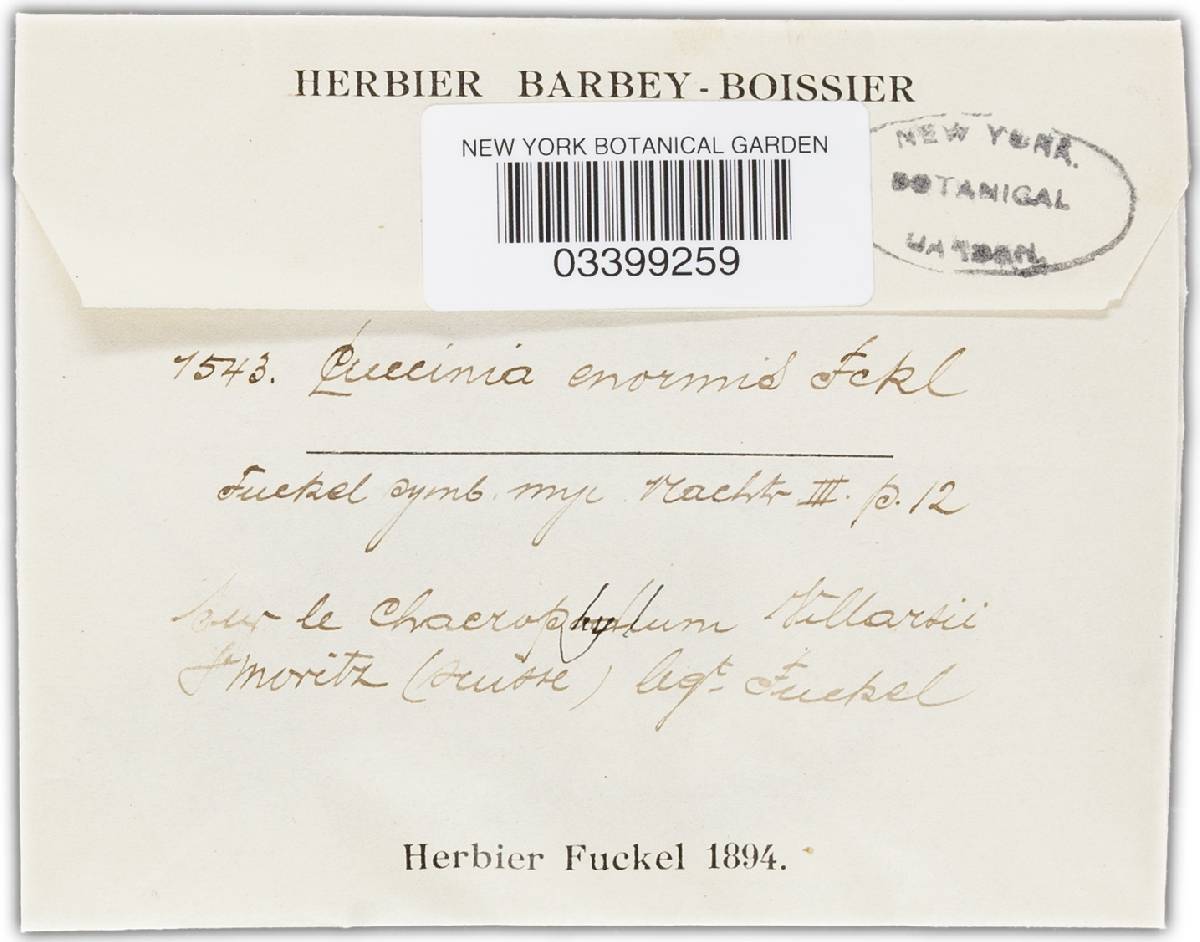 HERBIER BARBEY-BOISSIER
NEW YORK BOTANICAL GARDEN
03399259
NEW YORK
BOTANICAL
GARDEN
1543. Puccinia enormis Fckl
Fuckel symb. myc Nachtr III. p. 12
sur le Chaerophyllum Villarsii
St Moritz (Suisse) legt. Fuckel
Herbier Fuckel 1894.